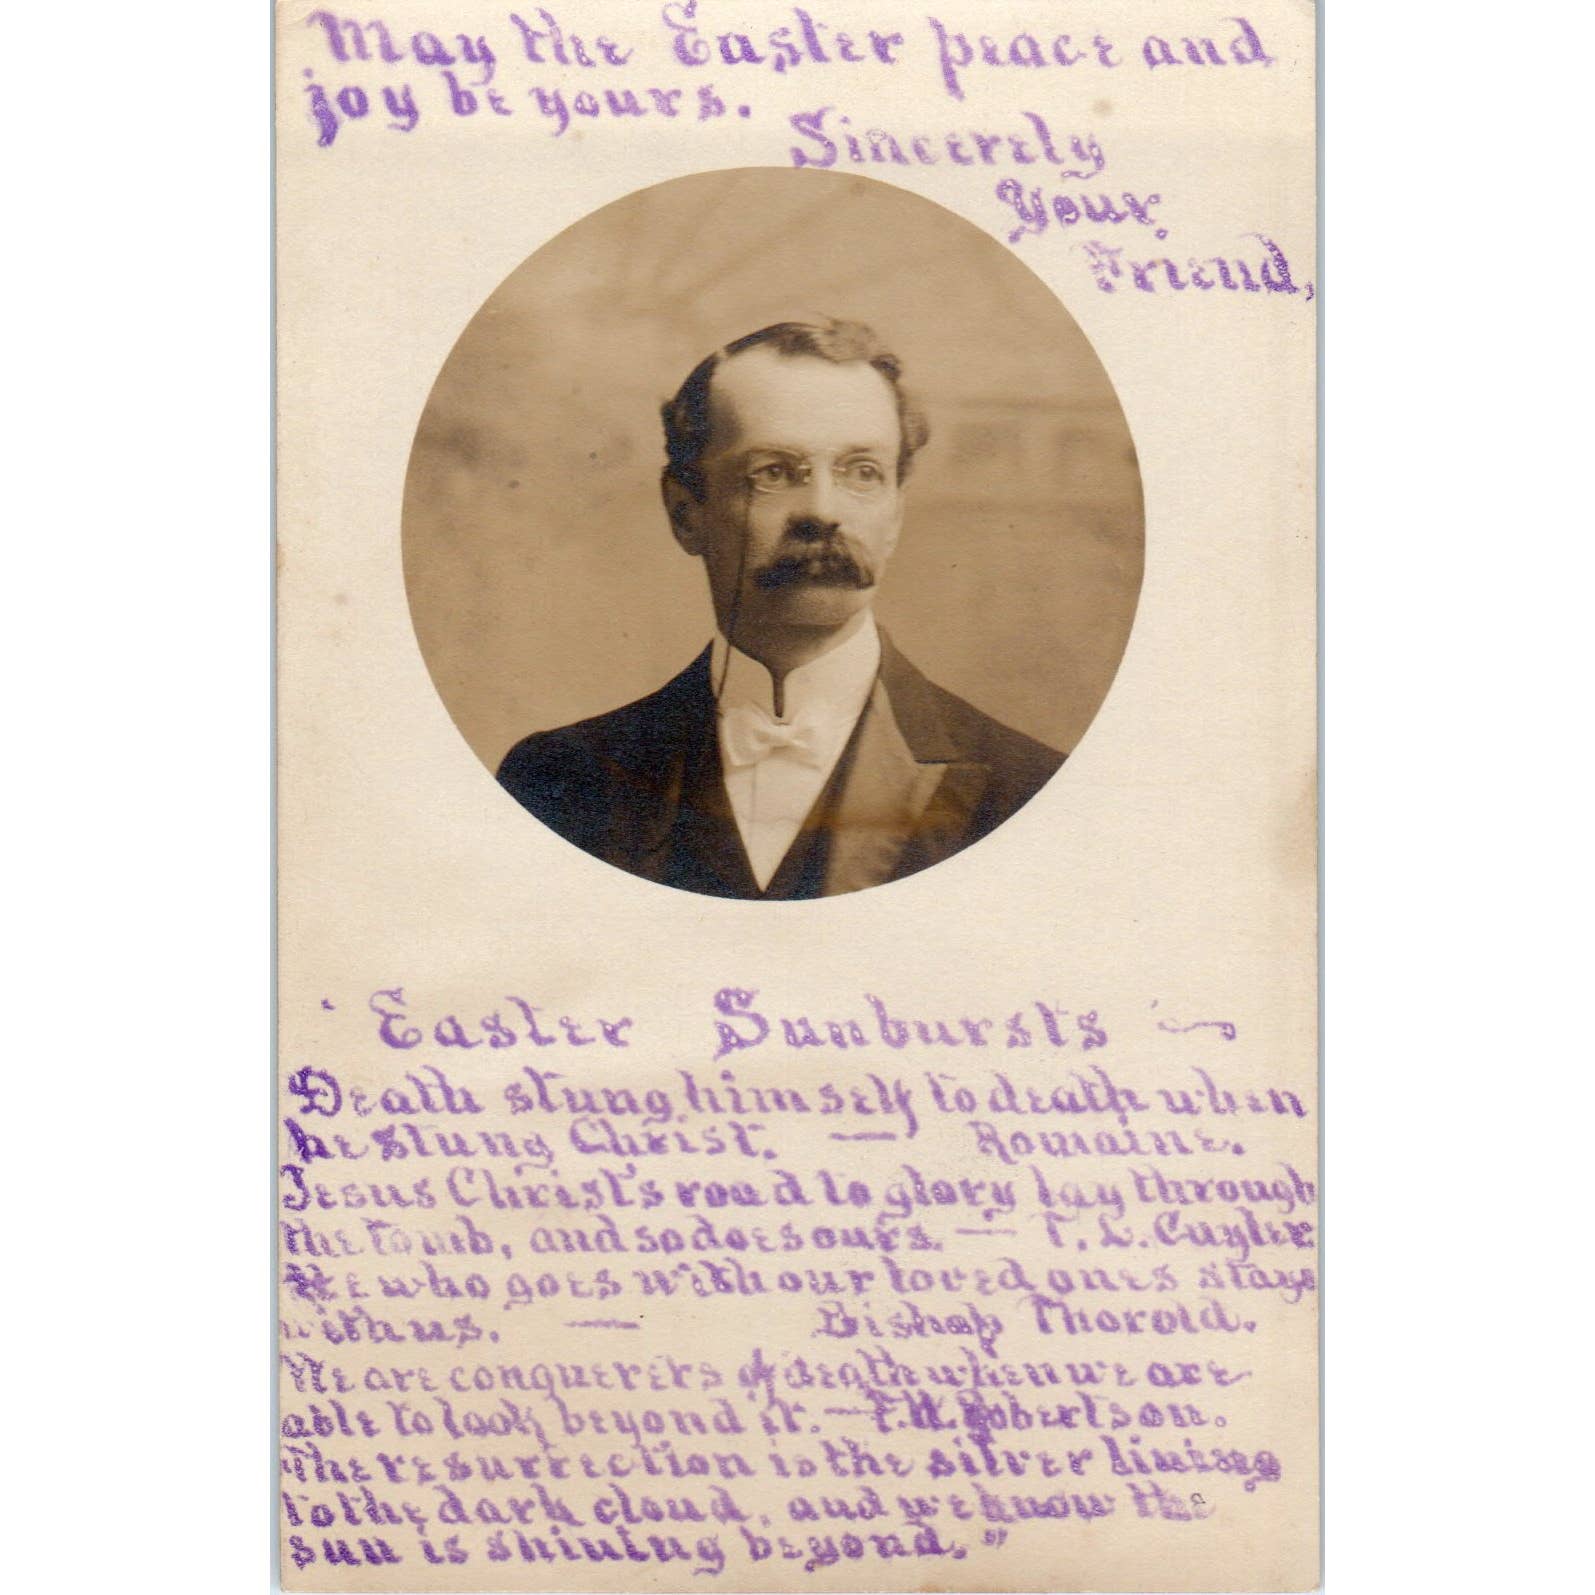 May the Easter peace and
joy be yours.
Sincerely
Your
Friend,
Easter Sunbursts
Death stung himself to death when
he stung Christ. — Romaine.
Jesus Christ's road to glory lay through
the tomb, and so does ours. — T. L. Cuyler
He who goes with our loved ones stays
with us. — Bishop Thorold.
We are conquerers of death when we are
able to look beyond it. — F. W. Robertson.
The resurrection is the silver lining
to the dark cloud, and we know the
sun is shining beyond."